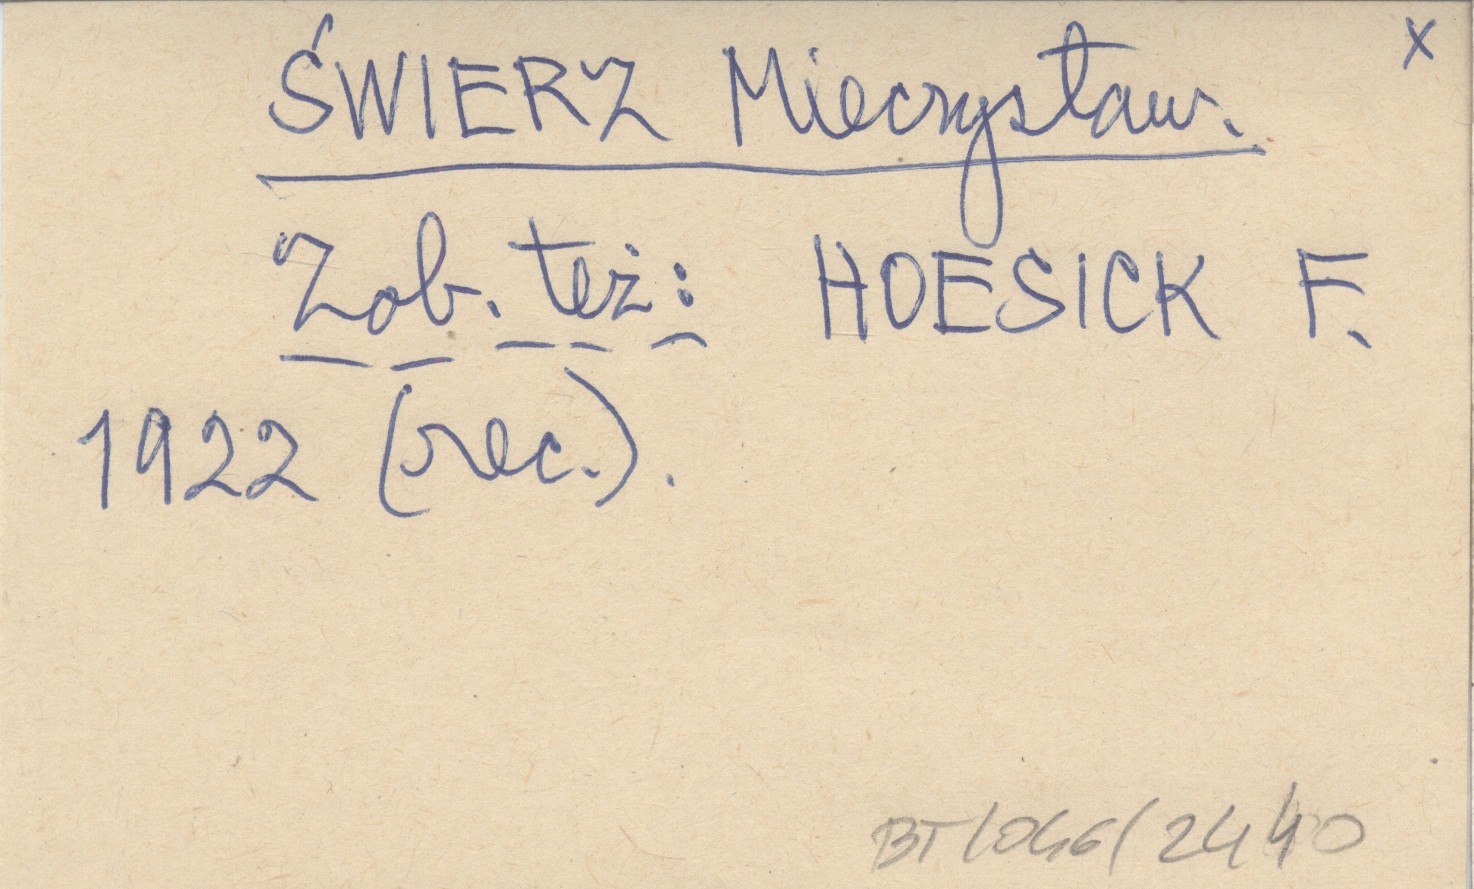 x
ŚWIERZ Mieczysław.
Zob. też: HOESICK F.
1922 (rec.).
BT/046/2440